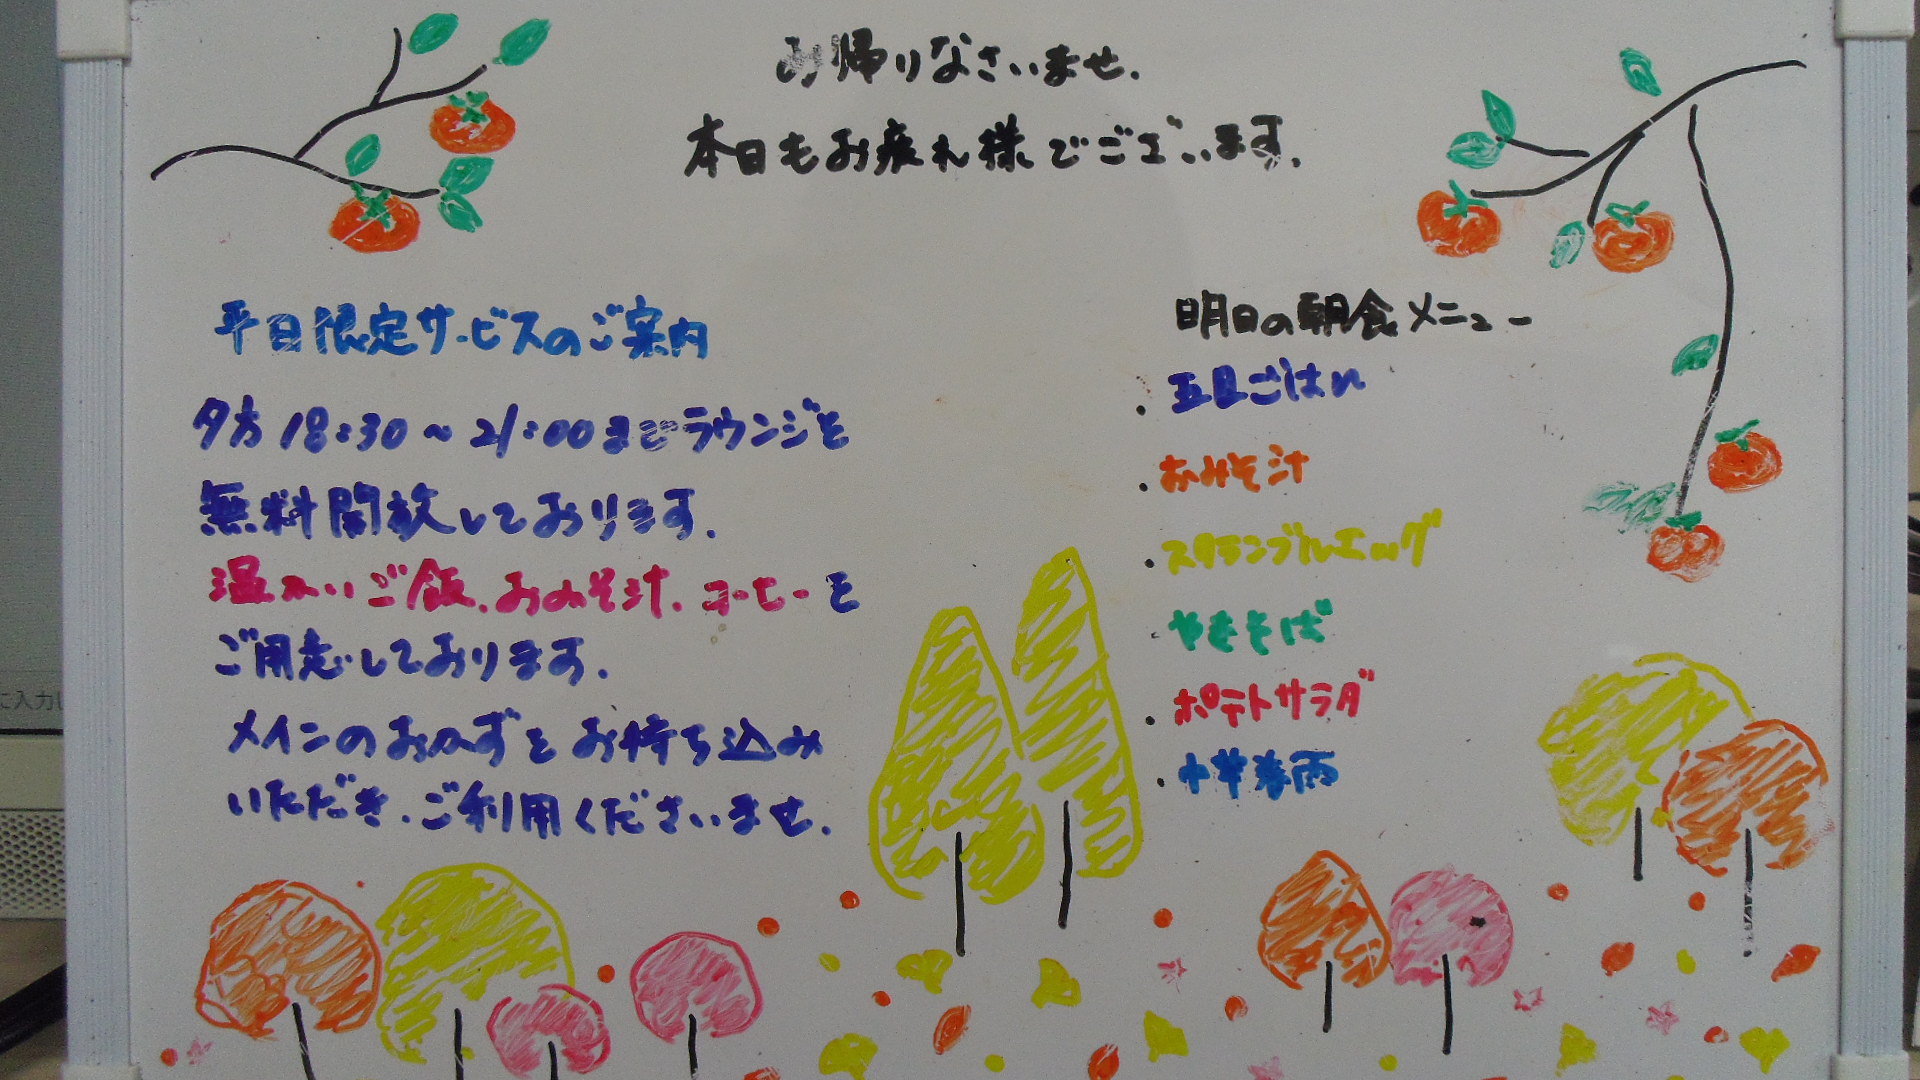 お帰りなさいませ.
本日もお疲れ様でございます.
平日限定サービスのご案内
夕方18:30～21:00までラウンジを
無料開放しております.
温かいご飯.おみそ汁.コーヒーを
ご用意しております.
メインのおかずをお持ち込み
いただき.ご利用くださいませ.
明日の朝食メニュー
・五目ごはん
・おみそ汁
・スクランブルエッグ
・やきそば
・ポテトサラダ
・中華春雨
に入力し